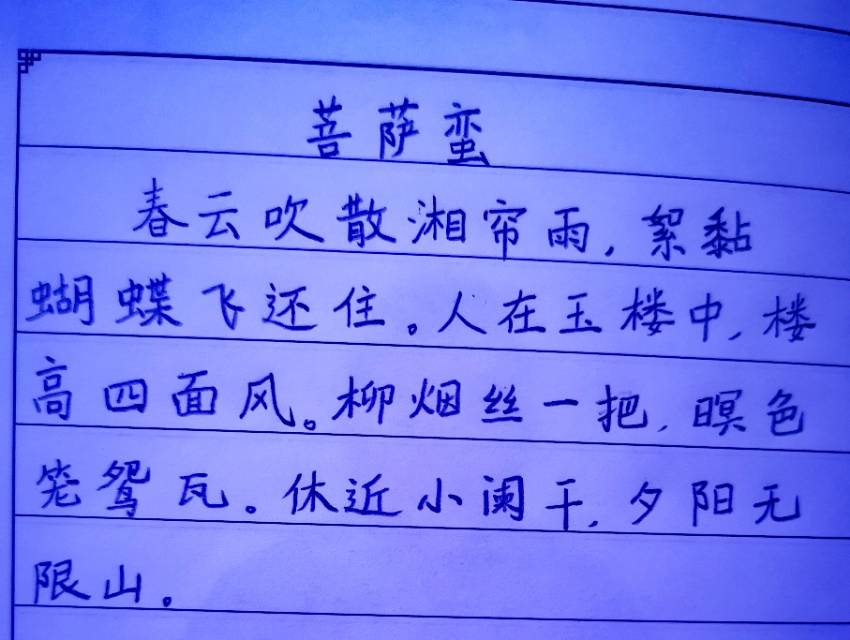 菩萨蛮
春云吹散湘帘雨,絮黏
蝴蝶飞还住。人在玉楼中,楼
高四面风。柳烟丝一把,暝色
笼鸳瓦。休近小阑干,夕阳无
限山。